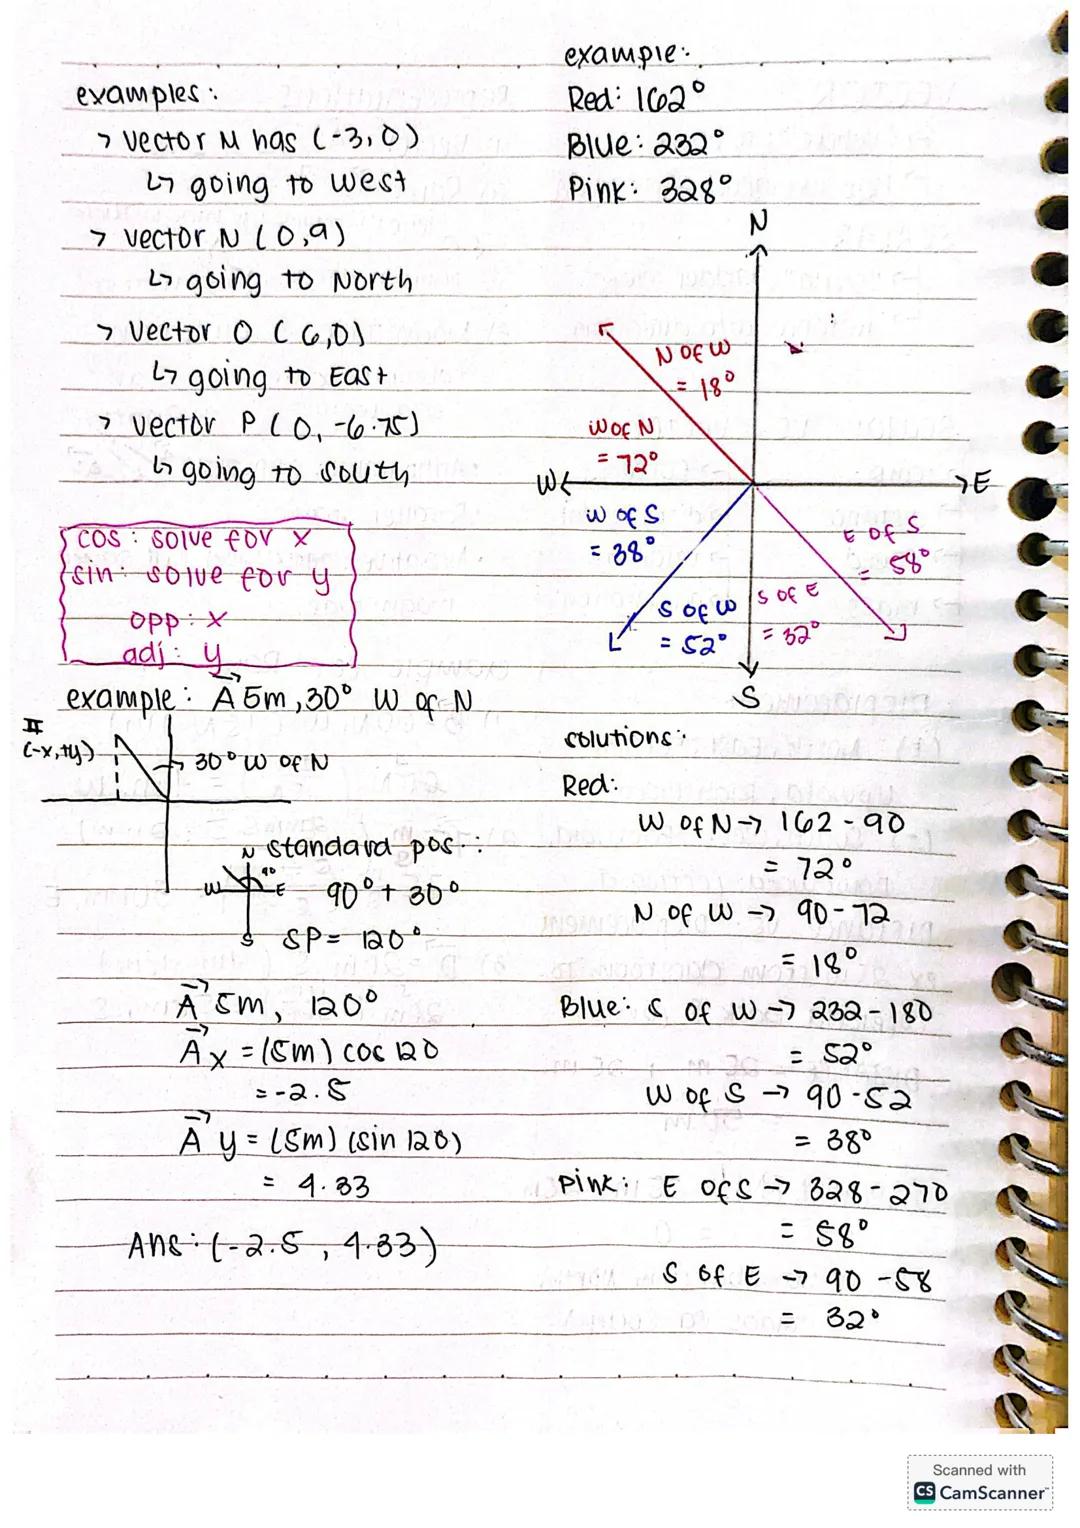 examples:
> vector M has (-3,0)
↳ going to west
> vector N (0,9)
↳ going to North
> vector O (6,0)
↳ going to East
> vector P (0, -6.75)
↳ going to south
cos: solve for x
sin: solve for y
opp: x
adj: y
example: A 5m, 30° W of N
II
(-x,+y)
30° W of N
standard pos.:
N
90
W E
S
90° + 30°
SP = 120°
A 5m, 120°
Ax = (5m) cos 120
= -2.5
Ay = (5m) (sin 120)
= 4.33
Ans: (-2.5, 4.33)
example:
Red: 162°
Blue: 232°
Pink: 328°
N
N of W
= 18°
W of N
= 72°
W
E
W of S
= 38°
E of S
= 58°
S of W
= 52°
S of E
= 32°
S
solutions:
Red:
W of N → 162 - 90
= 72°
N of W → 90 - 72
= 18°
Blue: S of W → 232 - 180
= 52°
W of S → 90 - 52
= 38°
Pink: E of S → 328 - 270
= 58°
S of E → 90 - 58
= 32°
Scanned with
CS CamScanner